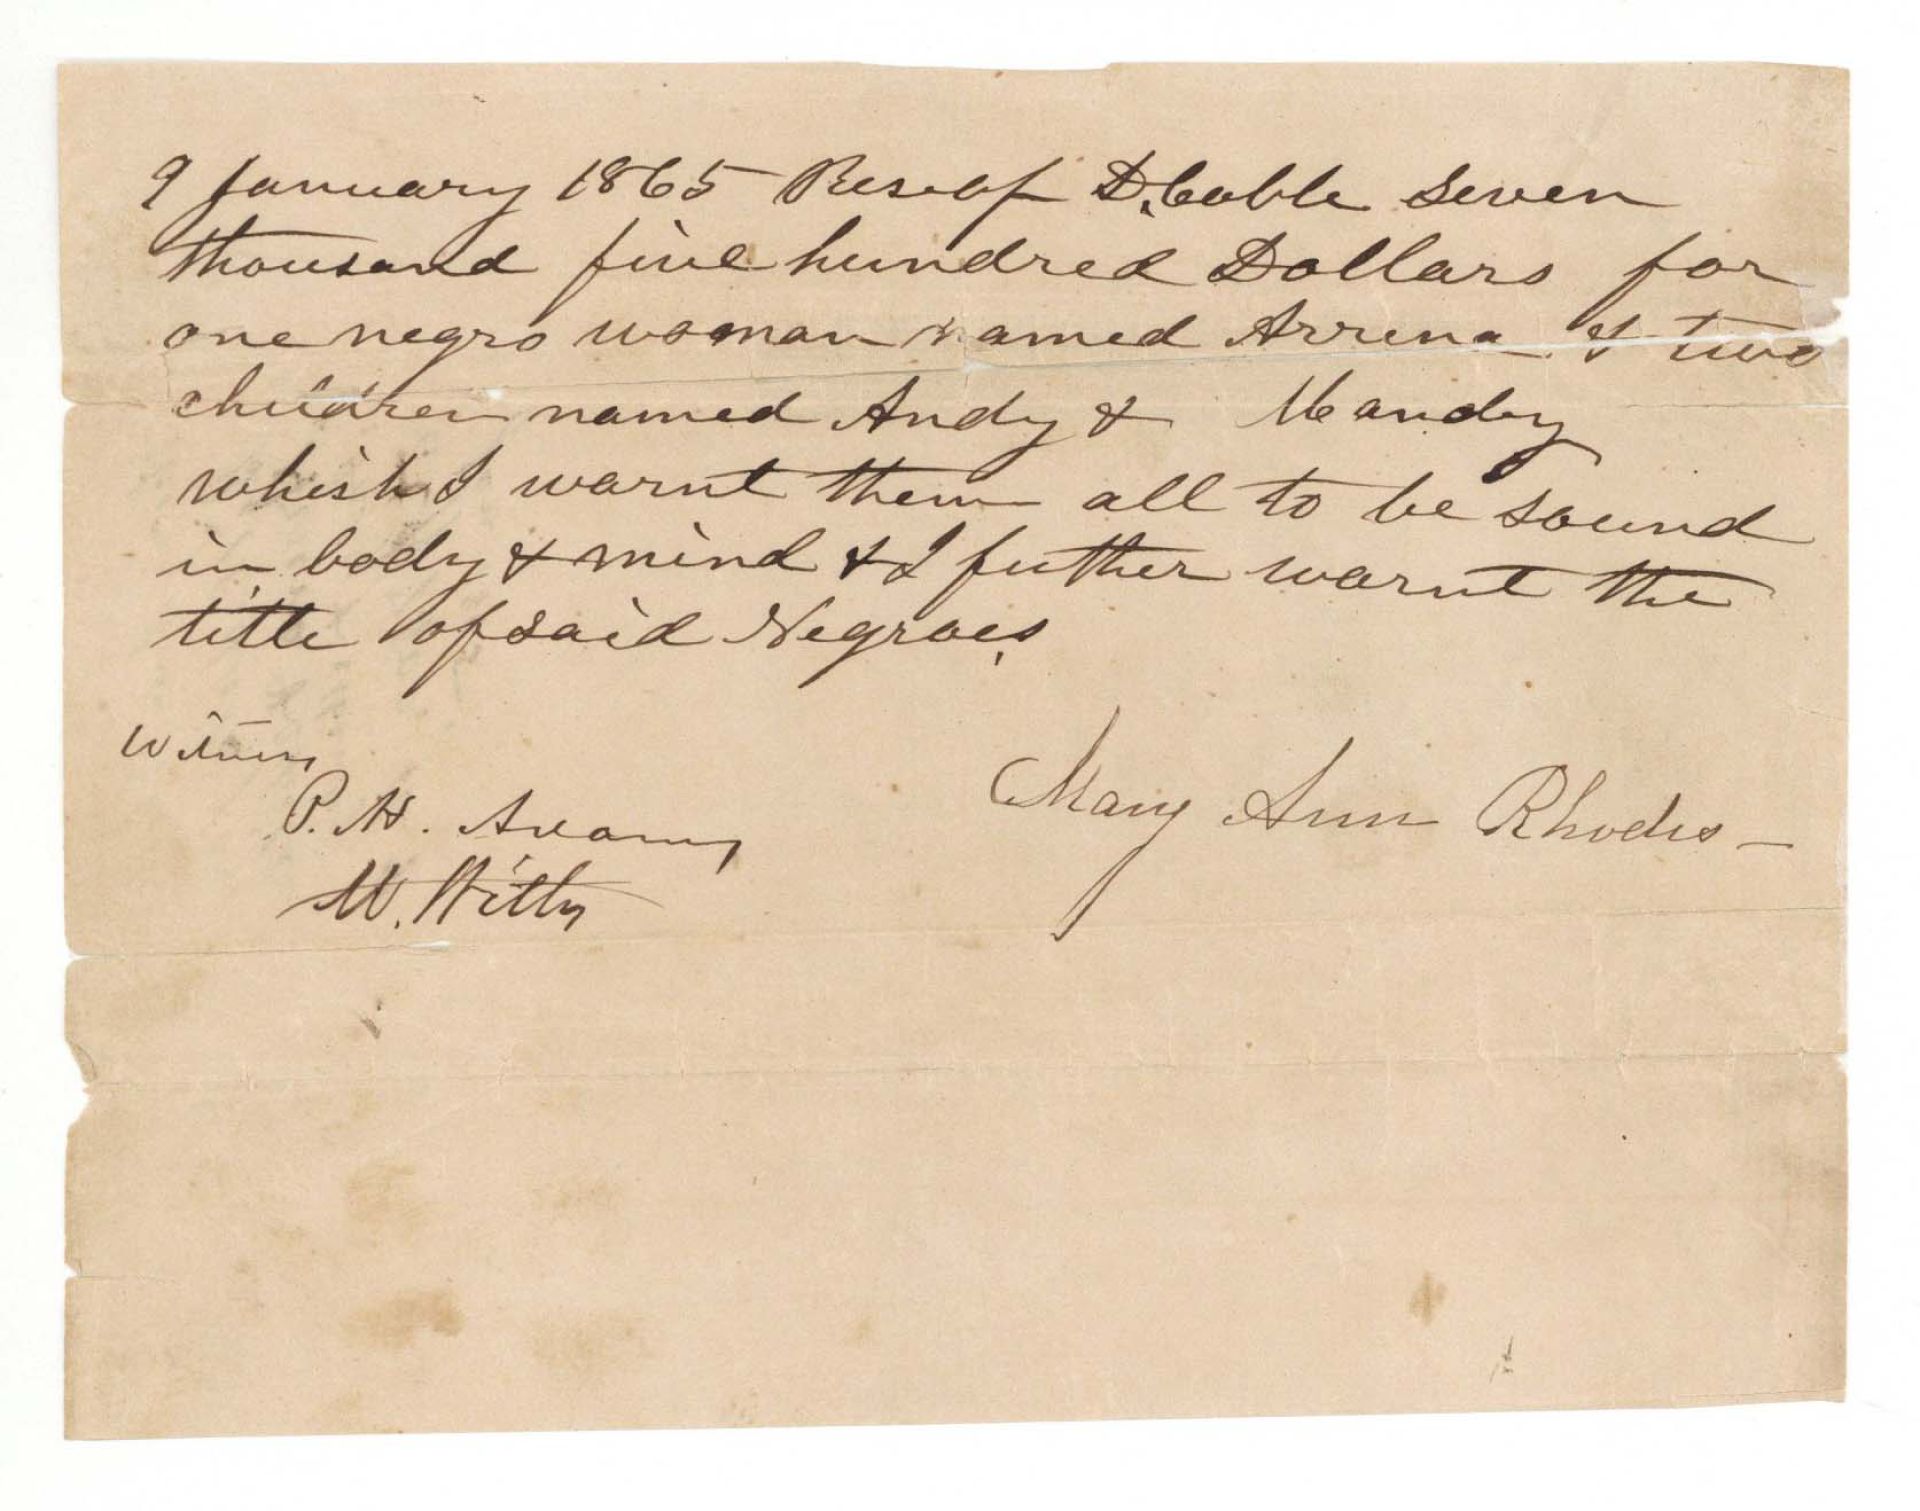 9 January 1865 Res of D. Coble Seven
thousand five hundred Dollars for
one negro woman named Arrena & two
children named Andy & Mandy
whish I warnt them all to be sound
in body & mind & I futher warnt the
title of said Negroes
Witness
P. H.
W. Witty
Mary Ann Rhodes